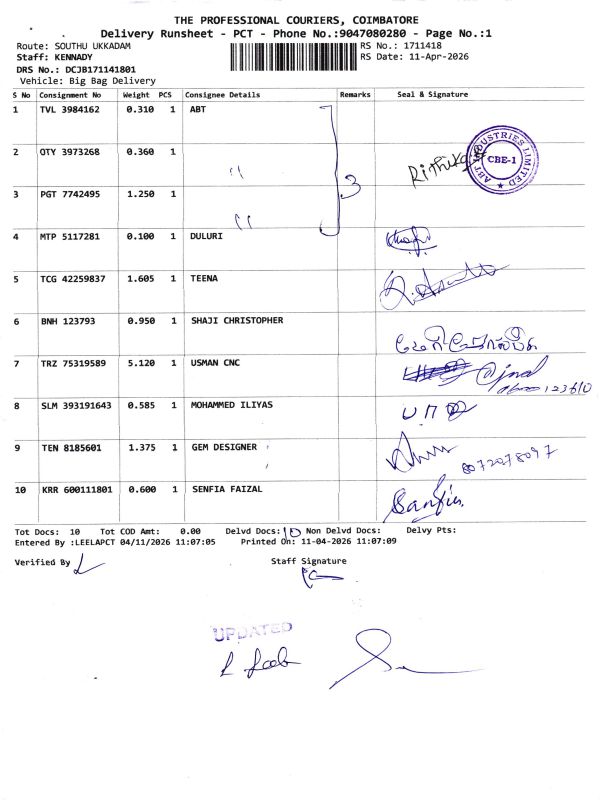 THE PROFESSIONAL COURIERS, COIMBATORE
Delivery Runsheet - PCT - Phone No.:9047080280 - Page No.:1
Route: SOUTHU UKKADAM
RS No.: 1711418
Staff: KENNADY
RS Date: 11-Apr-2026
DRS No.: DCJB171141801
Vehicle: Big Bag Delivery
S No Consignment No Weight PCS Consignee Details Remarks Seal & Signature
1 TVL 3984162 0.310 1 ABT
2 OTY 3973268 0.360 1 〃
Rithika
ABT INDUSTRIES LIMITED
CBE-1
3 PGT 7742495 1.250 1 〃
3
4 MTP 5117281 0.100 1 DULURI
5 TCG 42259837 1.605 1 TEENA
6 BNH 123793 0.950 1 SHAJI CHRISTOPHER
7 TRZ 75319589 5.120 1 USMAN CNC
8 SLM 393191643 0.585 1 MOHAMMED ILIYAS
9 TEN 8185601 1.375 1 GEM DESIGNER
8072078097
10 KRR 600111801 0.600 1 SENFIA FAIZAL
Tot Docs: 10 Tot COD Amt: 0.00 Delvd Docs: 10 Non Delvd Docs: Delvy Pts:
Entered By :LEELAPCT 04/11/2026 11:07:05 Printed On: 11-04-2026 11:07:09
Verified By
Staff Signature
UPDATED